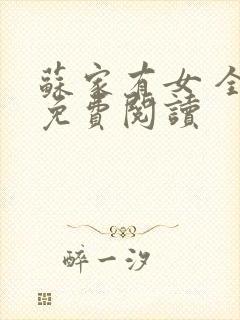 蘇家有女 全
免費閱讀
醉一汐